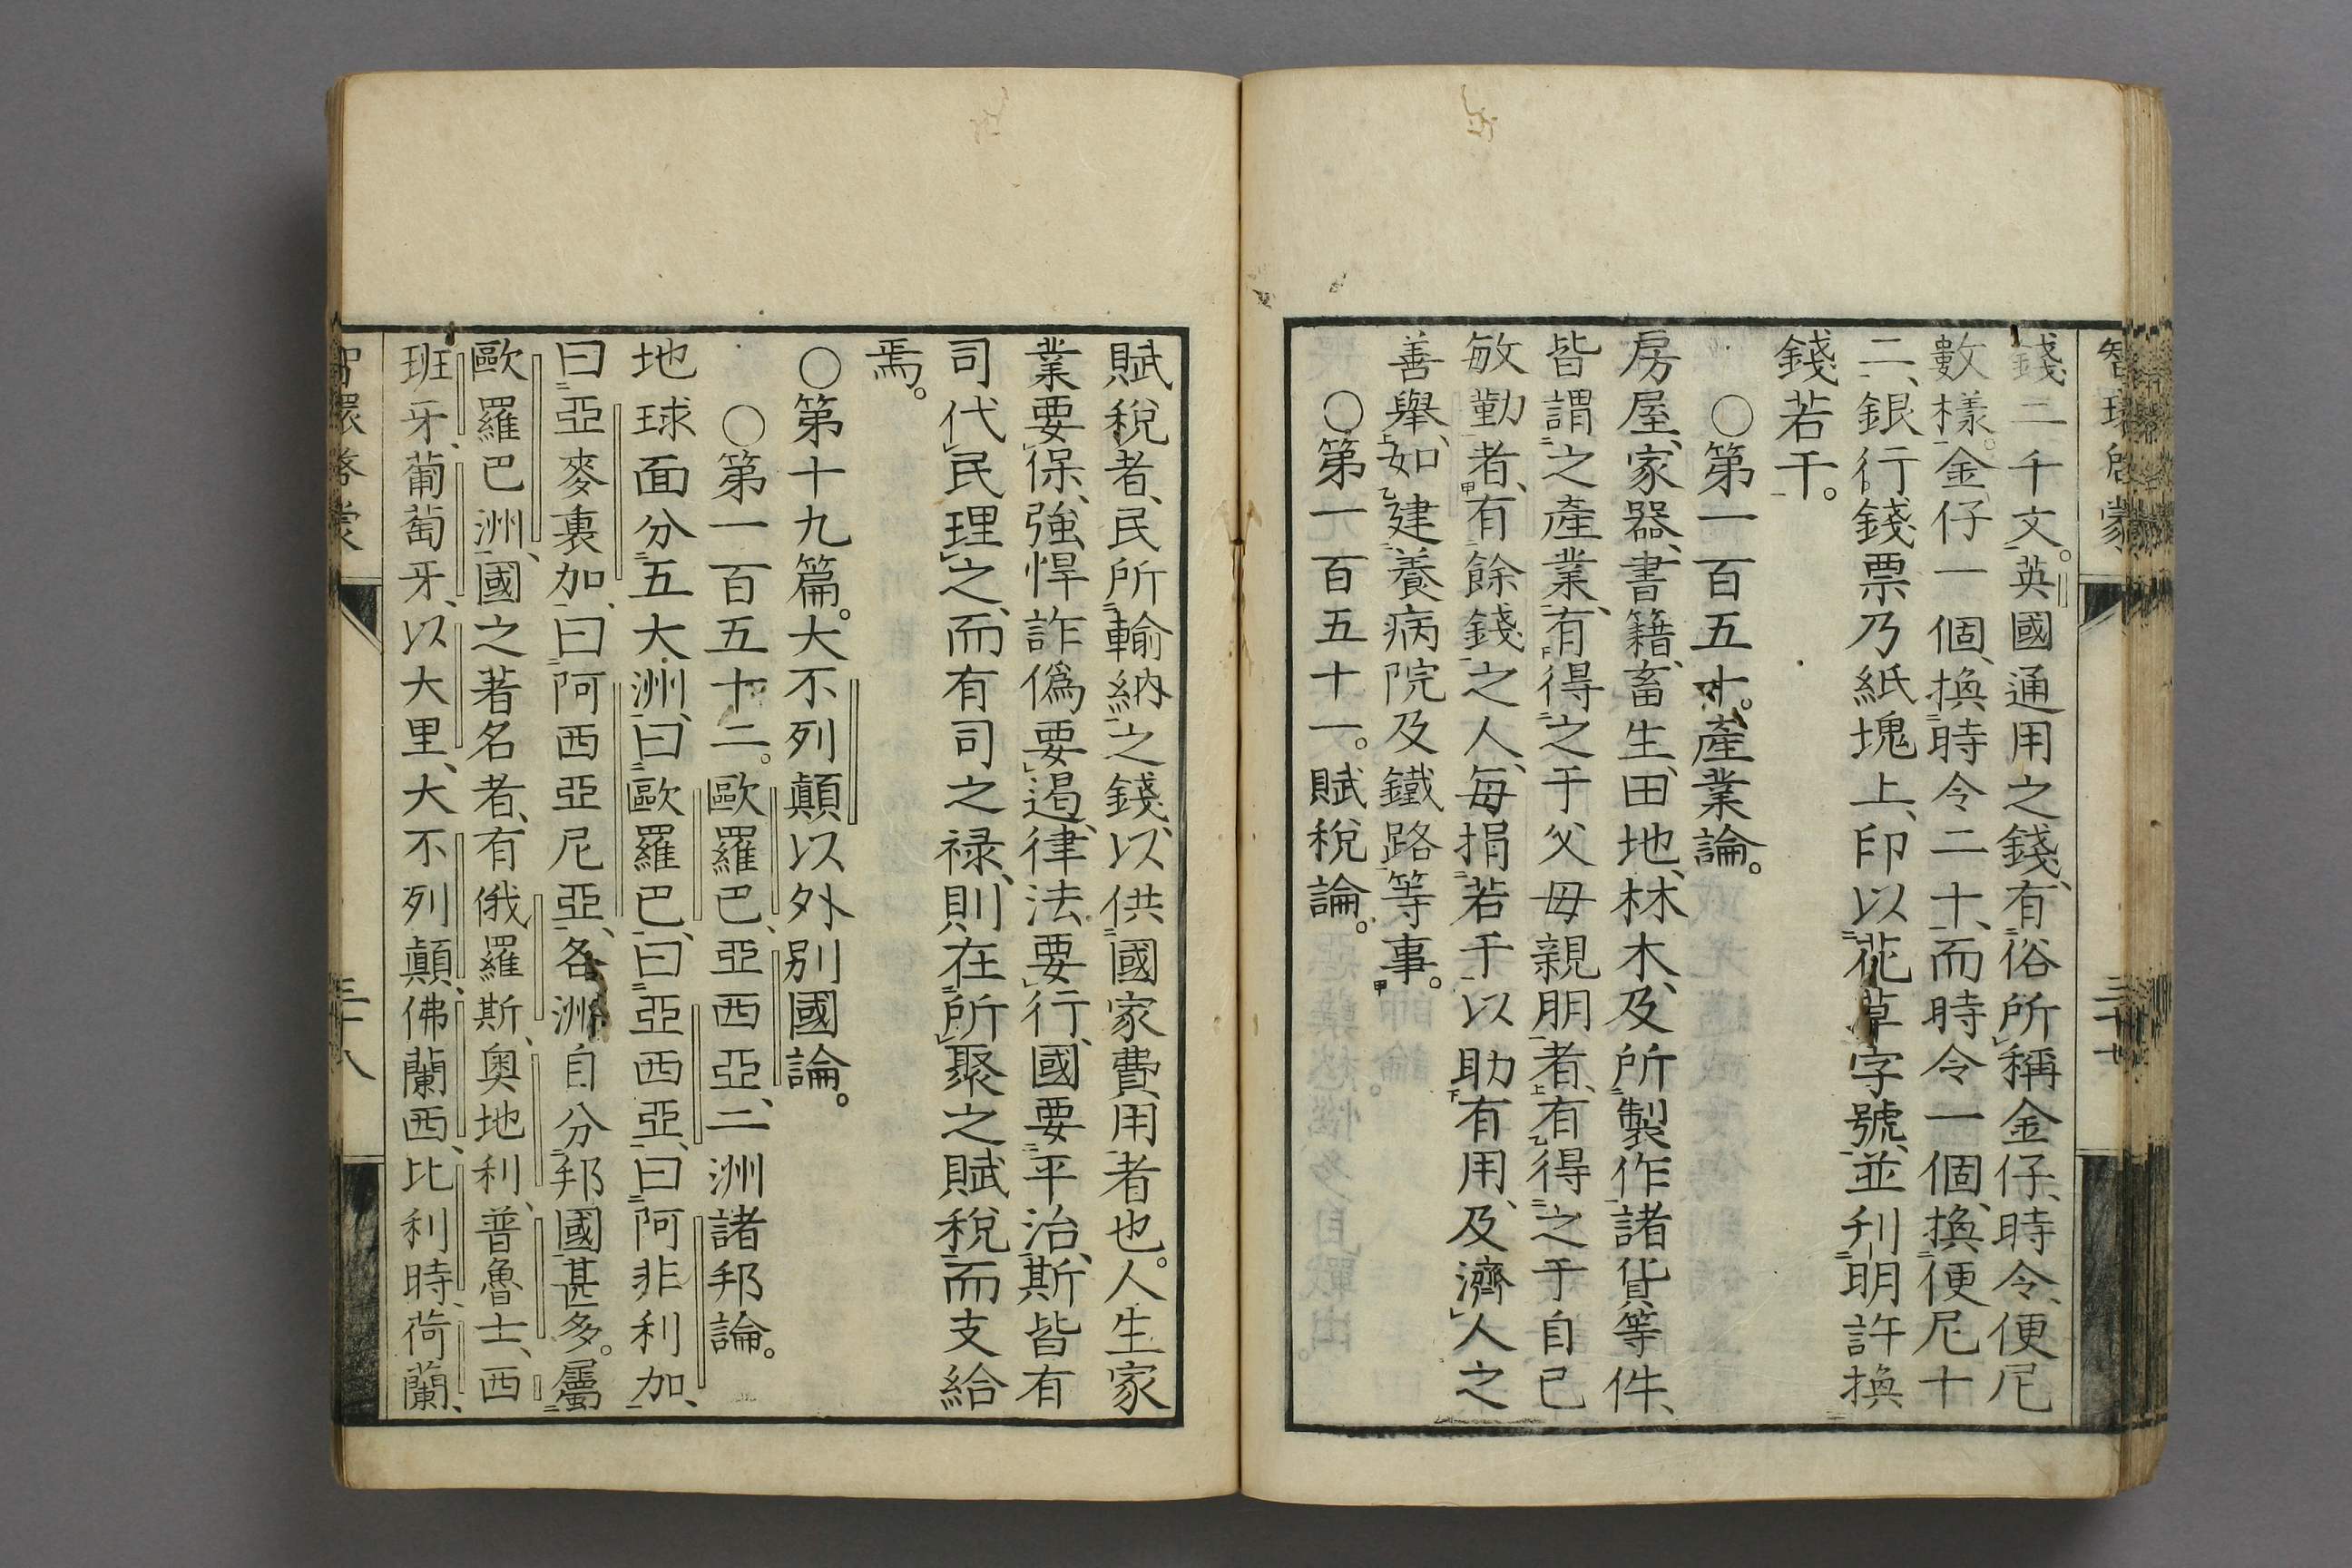 智環啓蒙
三十七
錢二千文。英國通用之錢、有俗所稱金仔、時令、便尼
數樣。金仔一個、換時令二十、而時令一個、換便尼十
二、銀行錢票乃紙塊上、印以花草字號、並刋明許換
錢若干。
○第一百五十。產業論。
房屋、家器、書籍、畜生、田地、林木、及所製作諸貨等件、
皆謂之產業、有得之于父母親朋者、有得之于自己
敏勤者、有餘錢之人、每捐若干以助有用、及濟人之
善舉、如建養病院及鐵路等事。
○第一百五十一。賦稅論。
賦稅者、民所輸納之錢、以供國家費用者也。人生家
業要保、強悍詐偽要遏、律法要行、國要平治、斯皆有
司代民理之、而有司之祿、則在所聚之賦稅而支給
焉。
○第十九篇。大不列顛以外別國論。
○第一百五十二。歐羅巴、亞西亞、二洲諸邦論。
地球面分五大洲、曰歐羅巴、曰亞西亞、曰阿非利加、
曰亞麥裏加、曰阿西亞尼亞、各洲自分邦國甚多。屬
歐羅巴洲、國之著名者、有俄羅斯、奧地利、普魯士、西
班牙、葡萄牙、以大里、大不列顛、佛蘭西、比利時、荷蘭、
智環啓蒙
三十八